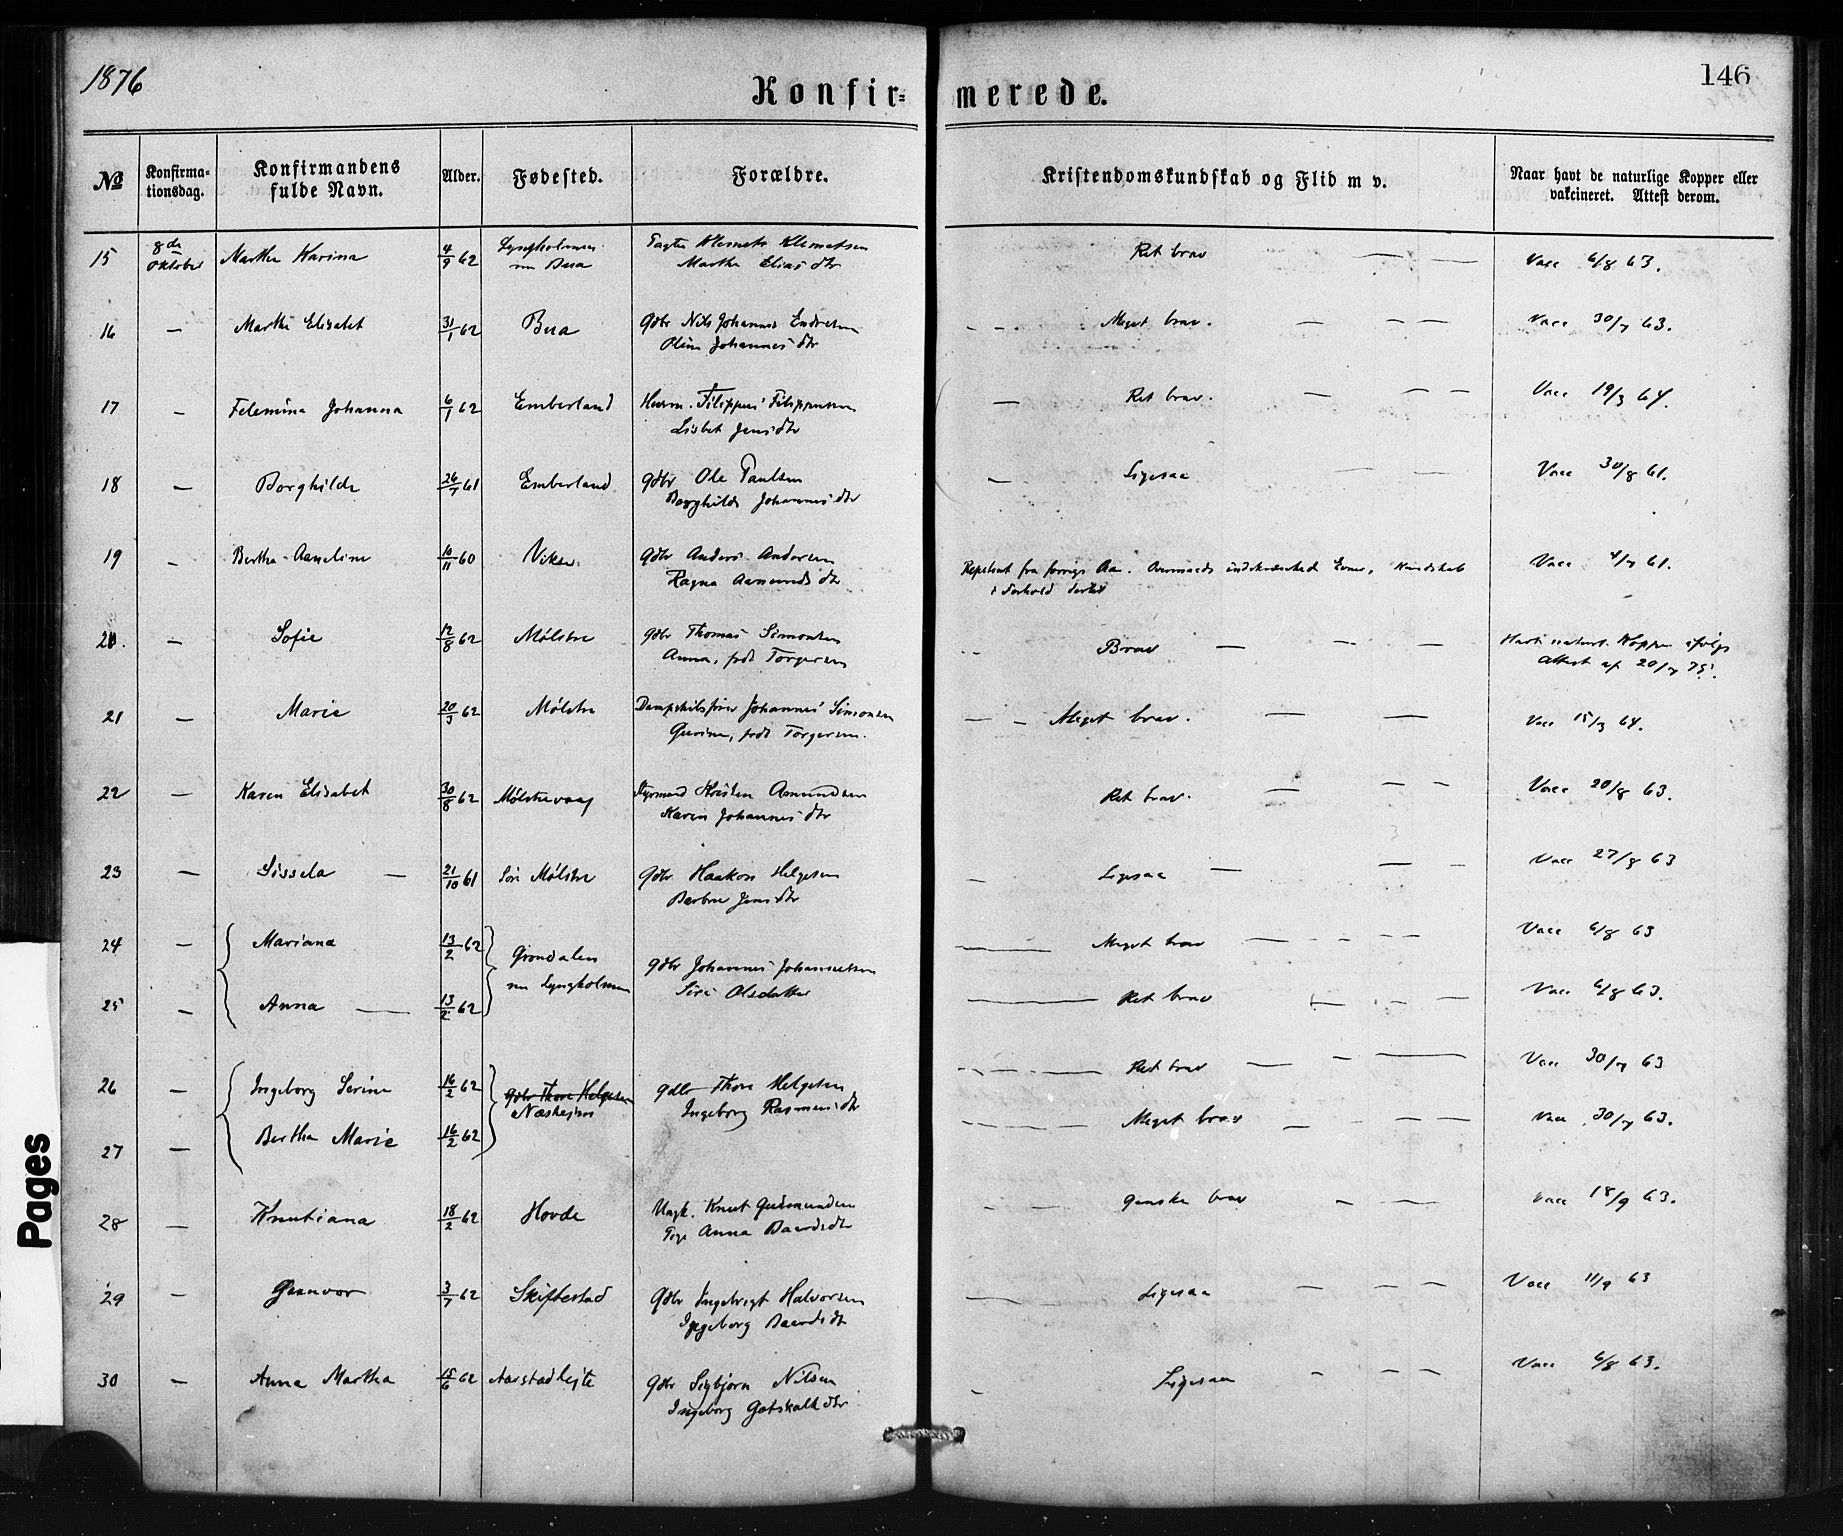 1876
Konfir= merede.
146
No Konfirma-tionsdag. Konfirmandens fulde Navn. Alder. Fødested. Forældre. Kristendomskundskab og Flid m v. Naar havt de naturlige Kopper eller vakcineret. Attest derom.
15 8de Oktober Marthe Karina 4/9 62 Lyngholmen Bua
Klemet Klemetsen
Marthe Elias dtr Ret brav — — Vacc 6/8 63.
16 — Marthe Elisabet 31/1 62 Bua Gdbr Nils Johannes Endresen
Oline Johannes dtr Meget brav. — — — Vacc 30/7 63.
17 — Felemina Johanna 6/1 62 Emberland Husm. Filippus Filippusen
Lisbet Jens dtr — Ret brav. — — — Vacc 19/3 64.
18 — Borghilde 26/7 61 Emberland Gdbr Ole Paulsen
Borghilde Johannes dtr — Ligesaa — — Vacc 30/8 61.
19 — Bertha Aaneline 10/11 60 Vikse. Gdbr Anders Andersen
Ragna Aamunds dtr Repetent fra forrige Aar. indskrænkede Evner, Kundskab
i Forhold dertil Vacc 4/7 61.
20. — Sofie 12/8 62 Mølstre Gdbr Thomas Simonsen
Anna, født Torgersen Brav — — — Havt naturl. Kopper ifølge
Attest af 20/7 75.
21 — Marie 20/3 62 Mølstre Dampskibsfører Johannes Simonsen
Gurine, født Torgersen. — — Meget brav. — — — Vacc 15/3 64.
22 — Karen Elisabet 30/8 62 Mølstrevaag Styrmand Kristen Amundsen
Karen Johannes dtr Ret brav. — — — Vacc 20/8 63.
23 — Sissela — 21/10 61 Søre Mølstre Gdbr Haakon Helgesen
Berbre Jens dtr — Ligesaa — — — Vacc 27/8 63
24 — Mariane 13/2 62 Grøndalen
Lyngholmen Gdbr Johannes Johannesen
Siri Olsdatter — Meget brav — — — — Vacc 6/8 63
25 — Anna — 13/2 62 — Ret brav — — — Vacc 6/8 63.
26 — Ingeborg Serine 16/2 62 Gdbr Thore Helgesen
Næshejm Gdbr Thore Helgesen
Ingeborg Rasmus dtr Ret brav — — — Vacc 30/7 63
27 — Bertha Marie 16/2 62 Meget brav — — — Vacc 30/7 63.
28 — Knutiana 18/2 62 Hovde Ungk. Knut Gudmundsen
Pige Anna Baards dtr — — Ganske brav — — Vacc 18/9 63.
29 — Gunvor 3/7 62 Skiftestad Gdbr Ingebrigt Halvorsen
Ingeborg Baards dtr — — Ligesaa — — — Vacc 11/9 63
30 — Anna Martha 15/6 62 Aarstadlejte Gdbr Sigbjørn Nilsen
Ingeborg Gotskalk dtr — Ligesaa — — — Vacc 6/8 63.
Pages